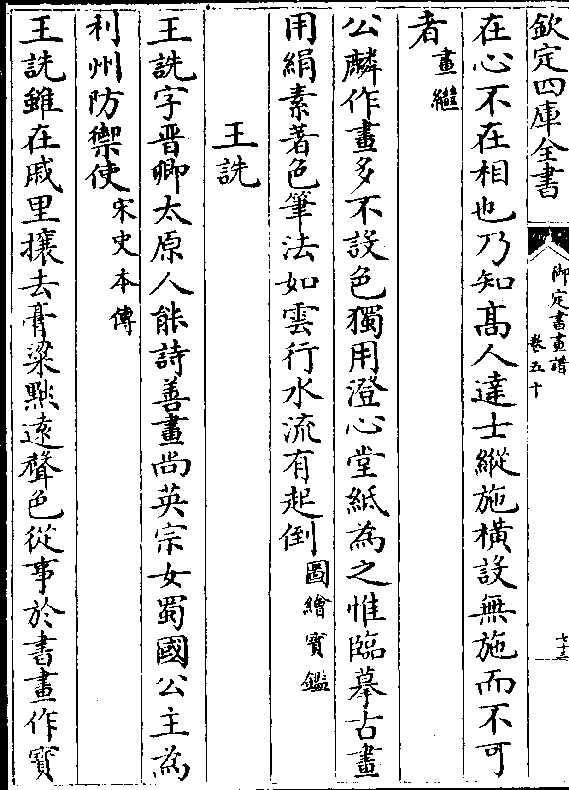 欽定四庫全書
御定書畫譜
卷五十
七十三
在心不在相也乃知髙人達士縱施橫設無施而不可
者畫繼
公麟作畫多不設色獨用澄心堂紙為之惟臨摹古畫
用絹素著色筆法如雲行水流有起倒圖繪寳鑑
王詵
王詵字晋卿太原人能詩善畫尚英宗女蜀國公主為
利州防禦使宋史本傳
王詵雖在戚里攘去膏粱黜遠聲色從事於書畫作寳